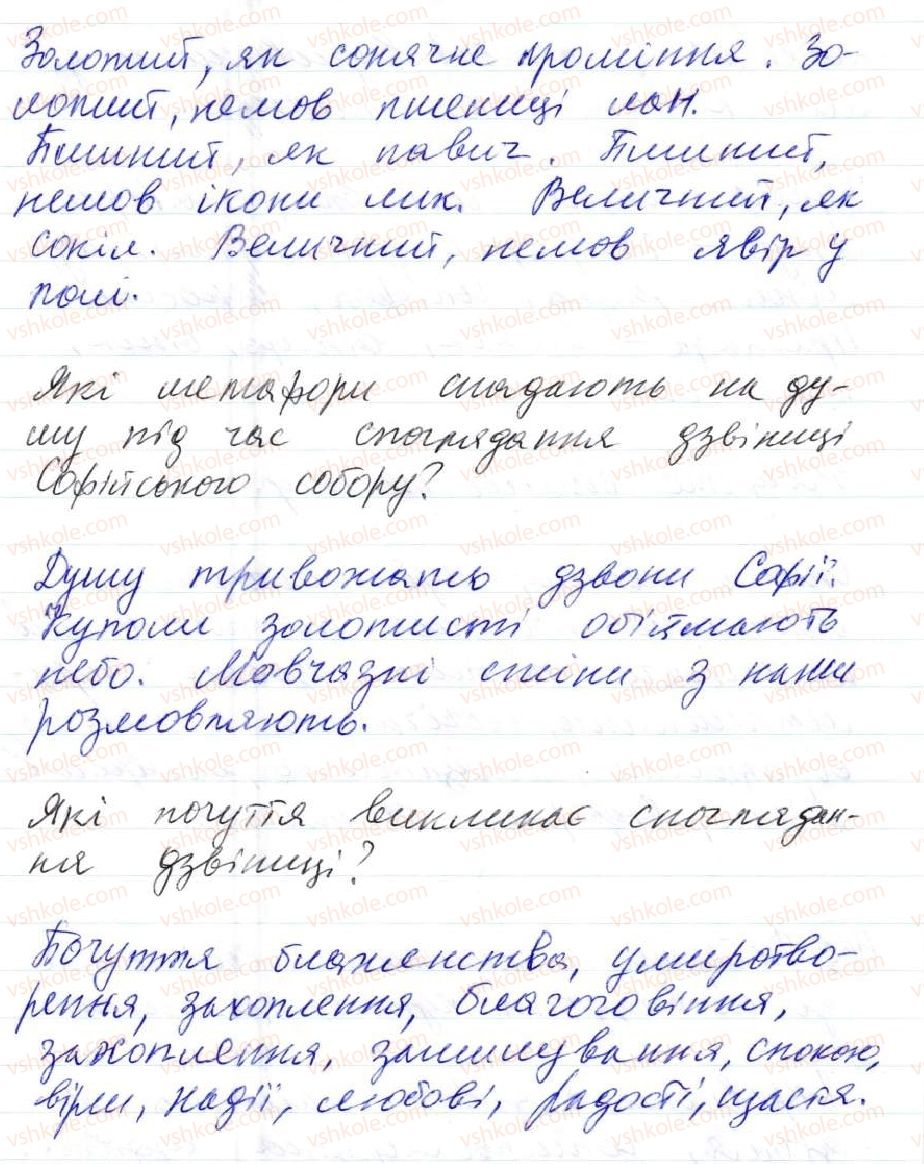 Золотий, як сонячне проміння. Зо-
лотий, немов пшениці лан.
Пишний, як павич. Пишний,
немов ікони лик. Величний, як
сокіл. Величний, немов явір у
полі.
Які метафори спадають на ду-
шу під час споглядання дзвіниці
Софійського собору?
Душу тривожать дзвони Софії.
Куполи золотисті обіймають
небо. Мовчазні стіни з нами
розмовляють.
Які почуття викликає споглядан-
ня дзвіниці?
Почуття блаженства, умиротво-
рення, захоплення, благоговіння,
захоплення, замилування, спокою,
віри, надії, любові, радості, щастя.